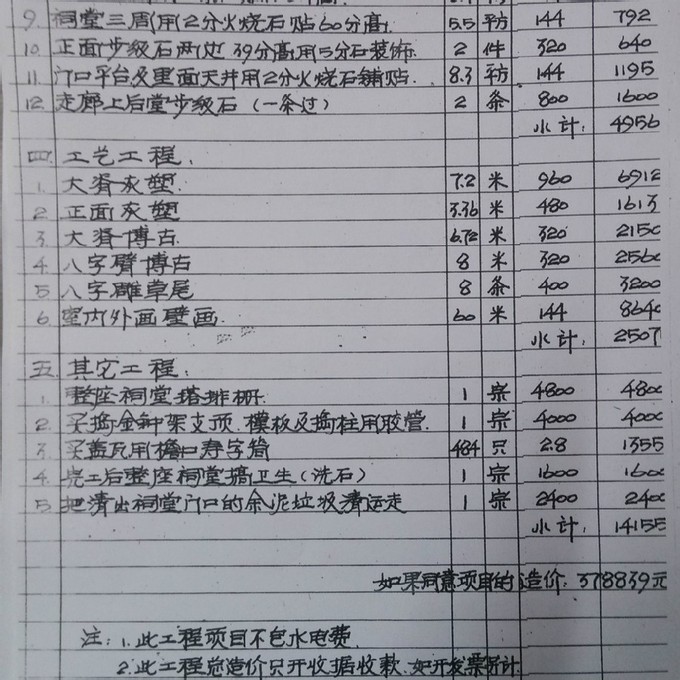 9. 祠堂三周用2分火烧石贴60分高 5.5 平方 144 792
10. 正面步级石两边39分高用5分石装饰 2 件 320 640
11. 门口平台及里面天井用2分火烧石铺贴. 8.3 平方 144 1195
12. 走廊上后堂步级石(一条过) 2 条 800 1600
小计: 4956
四. 工艺工程.
1. 大脊灰塑 7.2 米 960 6912
2. 正面灰塑 3.36 米 480 1613
3. 大脊博古 6.72 米 320 2150
4. 八字臂博古 8 米 320 2560
5. 八字雕草尾 8 条 400 3200
6. 室内外画壁画 60 米 144 8640
小计: 2507
五. 其它工程.
1. 整座祠堂搭排栅 1 宗 4800 4800
2. 买捣金钟架支顶.模板及捣柱用胶管. 1 宗 4000 4000
3. 买盖瓦用檐口寿字筒 484 只 2.8 1355
4. 完工后整座祠堂搞卫生(洗石) 1 宗 1600 1600
5. 把清出祠堂门口的余泥垃圾清运走 1 宗 2400 2400
小计: 14155
如果同意项目的造价: 378839元
注: 1. 此工程项目不包水电费.
2. 此工程总造价只开收据收款. 如开发票另计